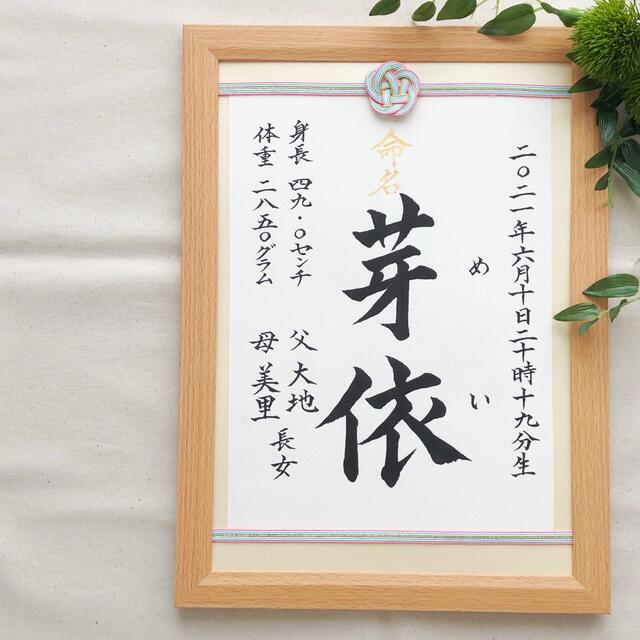 二〇二一年六月十日二十時十九分生
めい
命名
芽依
身長 四九・〇センチ
体重 二八五〇グラム
父 大地
母 美里
長女